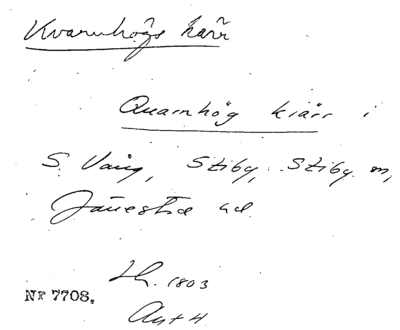 Kvarnhögs kärr
Quarnhög kiärr i
S. Vång, Stiby, Stiby sn,
Järrestad hd
Lh. 1803
Nr 7708.
Akt 4